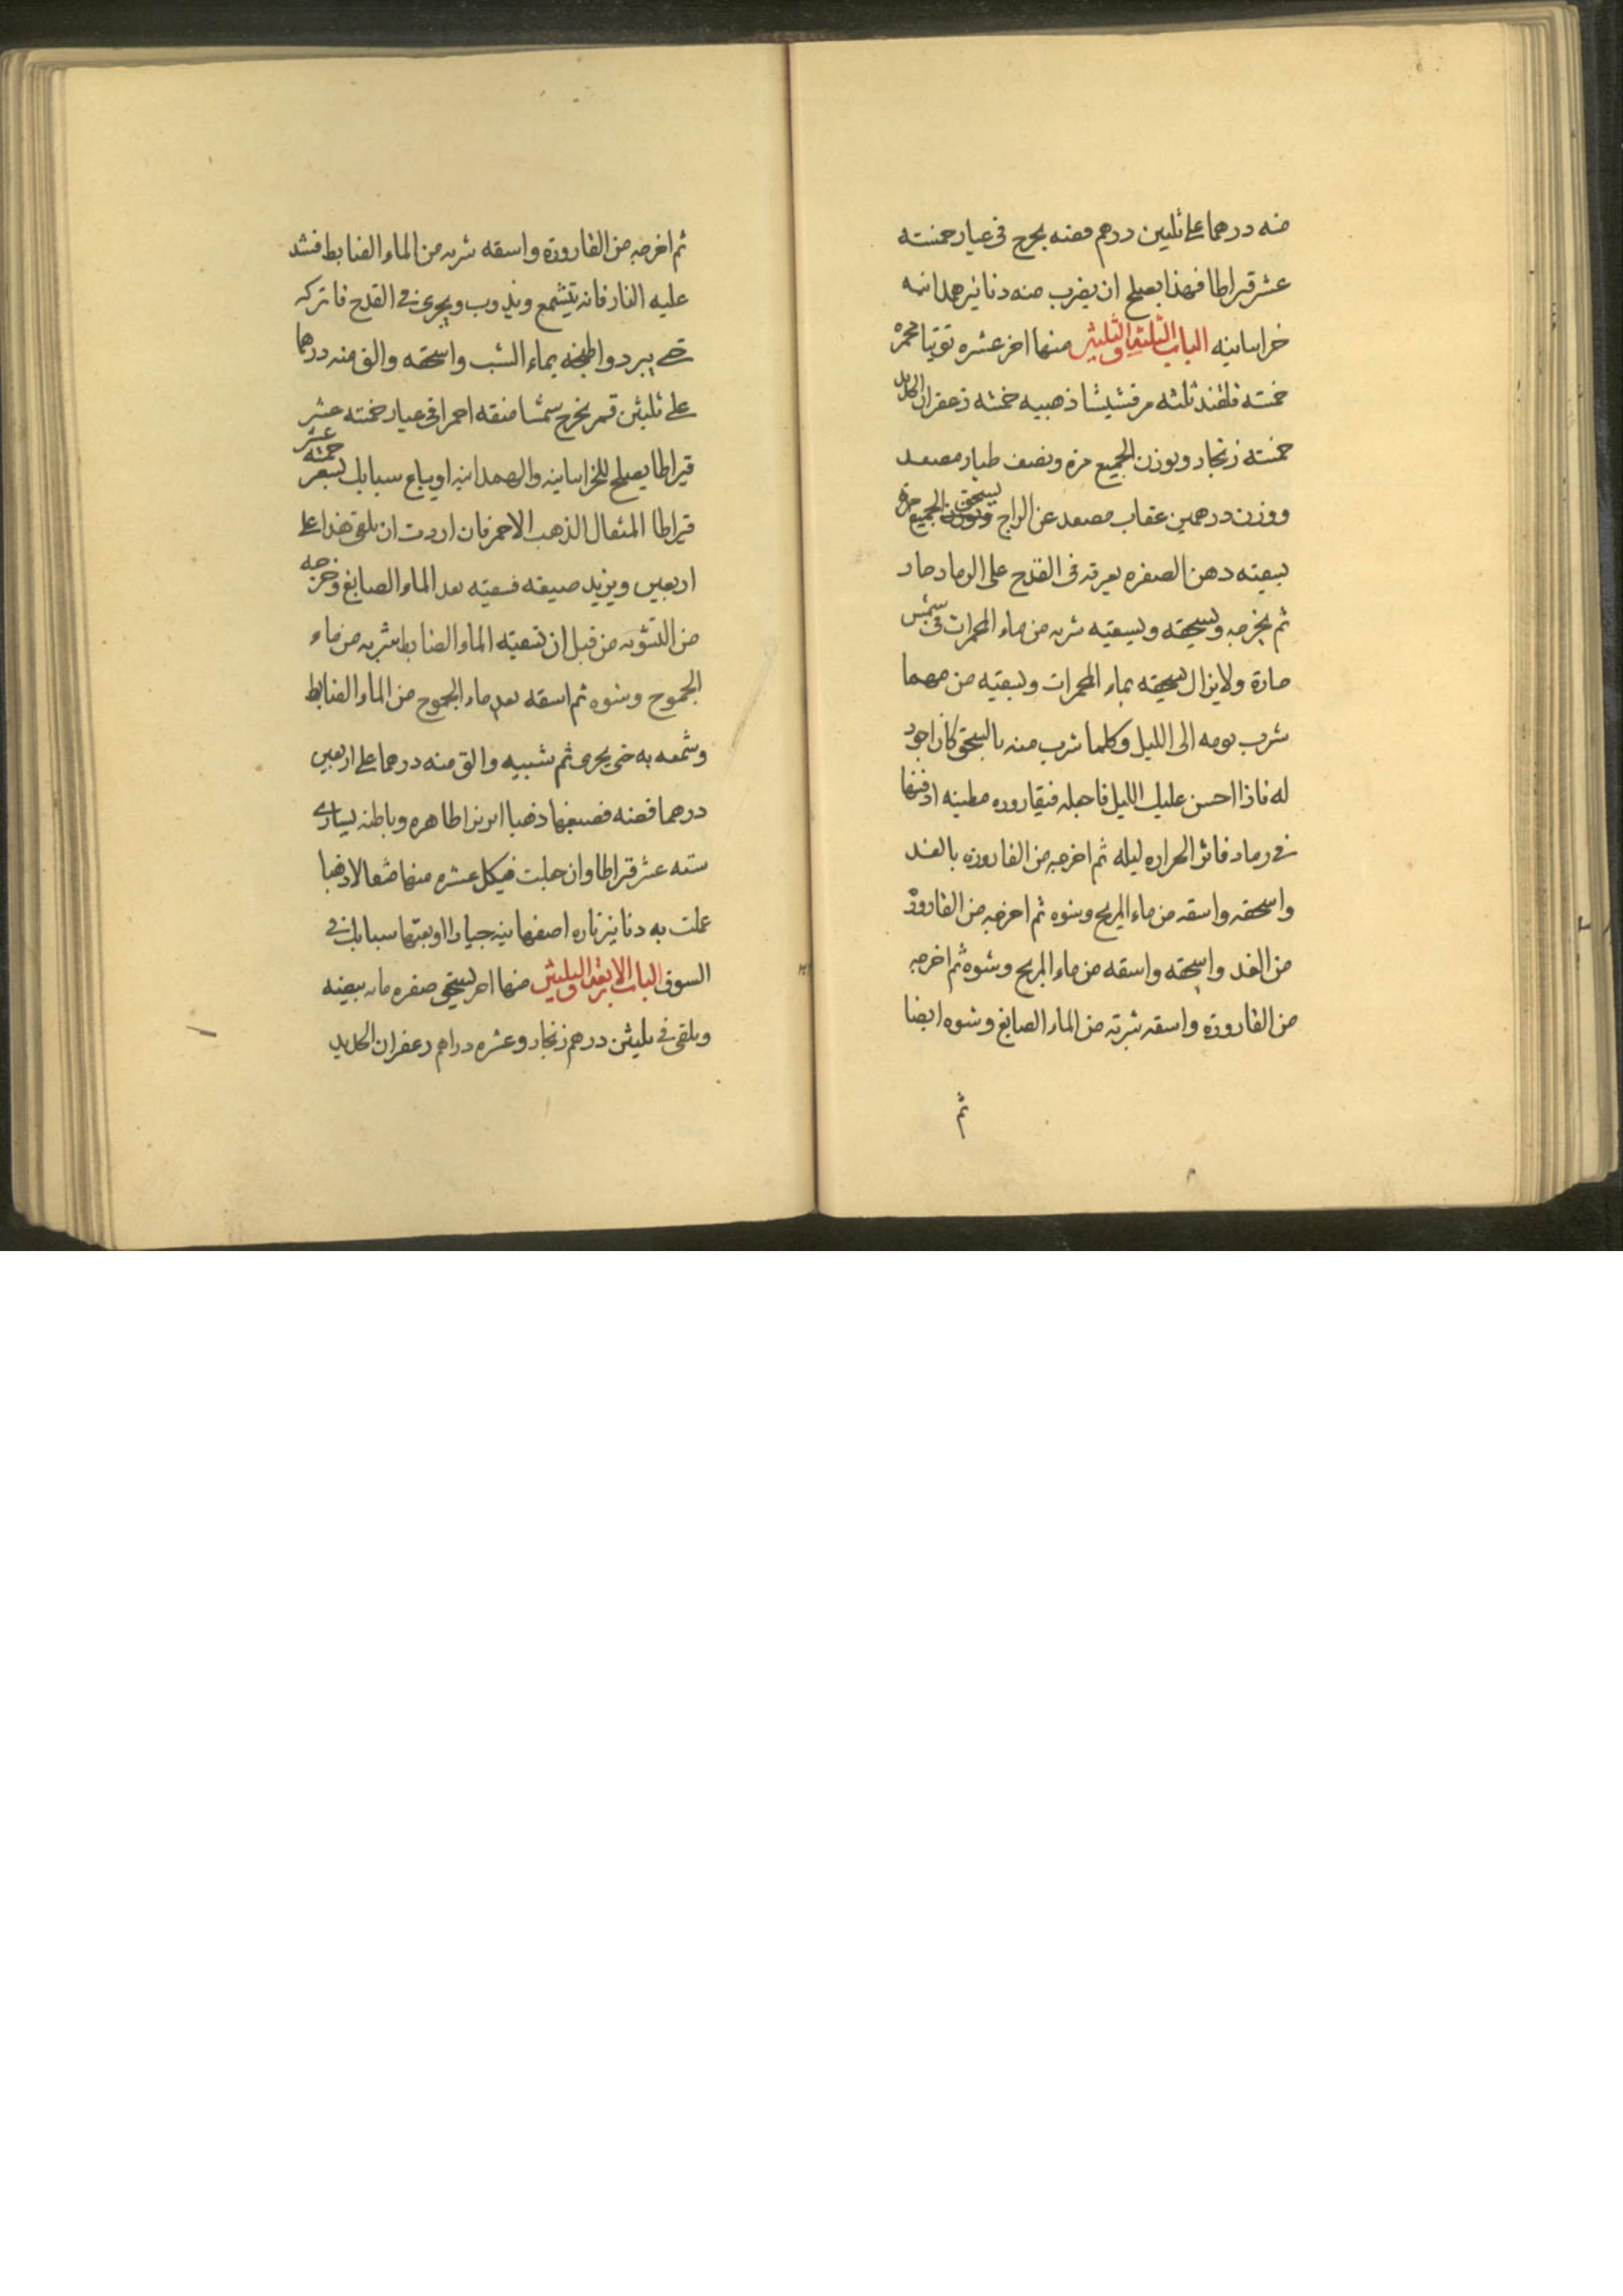 منه درهما على ثلثين درهم فضه يخرج فى عيار خمسته
عشر قيراطا فهذا يصلح ان يضرب منه دنانير همدانيه
خراسانيه الباب الثلثه والثلثين منها اخر عشره توتيا محمره
خمسته قلقند ثلثه مرقشيشا ذهبيه خمسه زعفران الحديد
خمسته زنجار وبوزن الجميع مره ونصف طيار مصعد
ووزن درهمين عقاب مصعد عن الزاج يسحق الجميع مره
بسقيته دهن الصفره يعرقه فى القدح على الرماد حار
ثم يخرجه ويسحقه ويسقيه شربه من ماء المحمرات فى شمس
حارة ولا يزال يسحقه بماء المحمرات ويسقيه من مهما
شرب يومه الى الليل وكلما شرب منه بالسحق كان اجود
له فاذا احسن عليك الليل فاجعله فيقاروره مطينه ادفنها
فى رماد فاتر الحراره ليله ثم اخرجه من القاروره بالغد
واسحقه واسقه من ماء المريخ وشوه ثم اخرجه من القاروره
من الغد واسحقه واسقه من ماء المريخ وشوه ثم اخرجه
من القاروره واسقه شربة من الماء الصابغ وشوه ايضا
ثم
ثم اخرجه من القاروره واسقه شربه من الماء الضابط فشد
عليه النار فانه يتشمع ويذوب ويجرى فى القدح فاتركه
حتى يبرد واطبخه بماء الشب واسحقه والق منه درهما
على ثلثين قمر يخرج شمسا منقه احمرا فى عيار خمسته عشر
قيراطا يصلح للخراسانيه والهمدانيه او يباع سبايك بسعر خمسة عشر
قيراطا المثقال الذهب الاحمر فان اردت ان يلقى هذا على
اربعين ويزيد صبغه فسقيته بعد الماء الصابغ وخرجه
من التشويه من قبل ان تسقيه الماء الضابط بشربه من ماء
الجموح وشوه ثم اسقه بعد ماء الجموح من الماء الضابط
وشمعه به حتى يجرى ثم شببه والق منه درهما على اربعين
درهما فضه فصبغها ذهبا ابريزا ظاهره وباطنه يساوى
سته عشر قيراطا وان حملت فيكل عشره منها مثقالا ذهبا
عملت به دنانير تاره اصفهانيه جيادا او بعتها سبايك فى
السوق الباب الاربعه والثلثين منها اخر يسحق صفره مايه بيضه
ويلقى فى ثلثين درهم زنجار وعشره دراهم زعفران الحديد